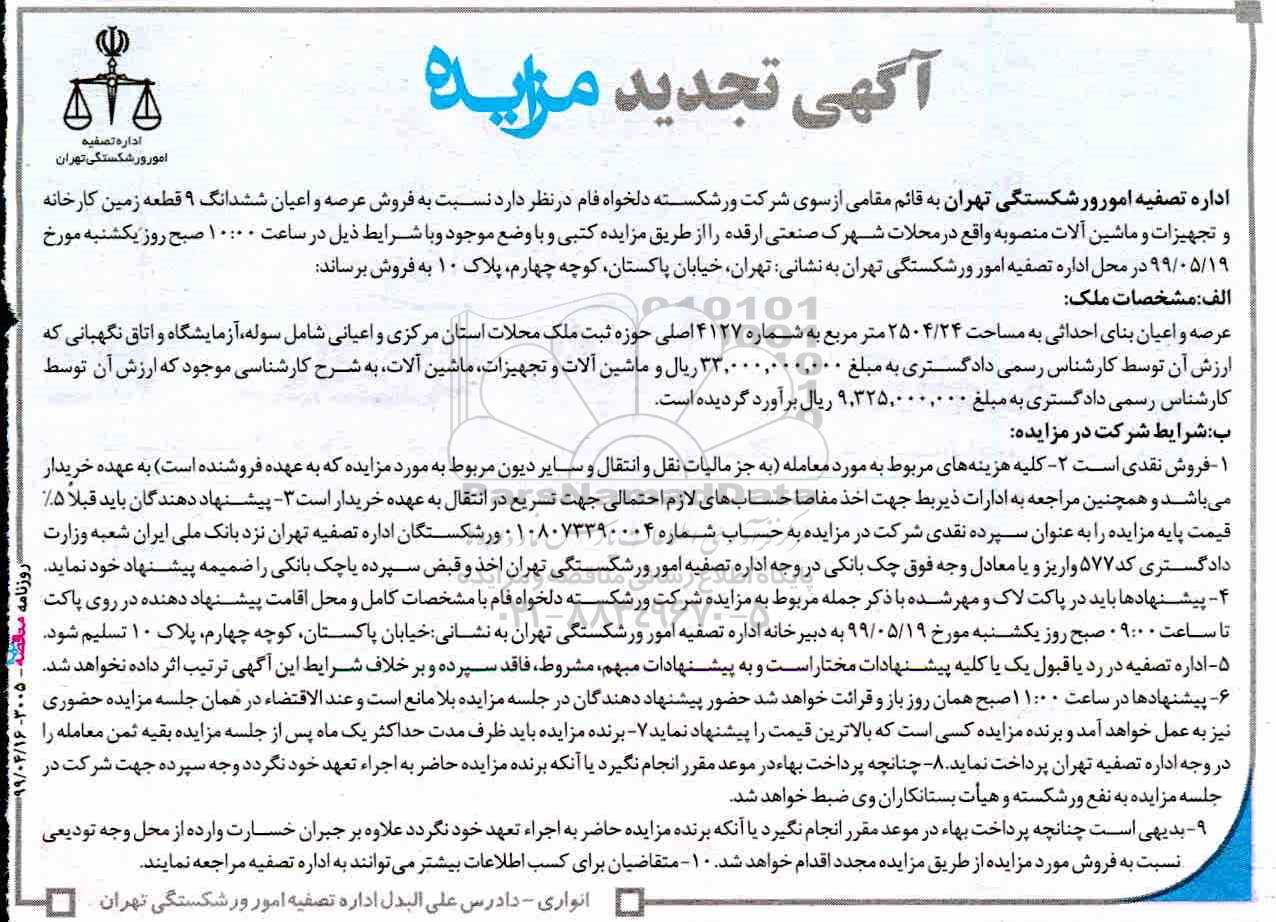 آگهی تجدید مزایده
اداره تصفیه
امور ورشکستگی تهران
اداره تصفیه امور ورشکستگی تهران به قائم مقامی از سوی شرکت ورشکسته دلخواه فام درنظر دارد نسبت به فروش عرصه و اعیان ششدانگ ۹ قطعه زمین کارخانه
و تجهیزات و ماشین آلات منصوبه واقع در محلات شهرک صنعتی ارقده را از طریق مزایده کتبی و با وضع موجود وبا شرایط ذیل در ساعت ۱۰:۰۰ صبح روز یکشنبه مورخ
۹۹/۰۵/۱۹ در محل اداره تصفیه امور ورشکستگی تهران به نشانی: تهران، خیابان پاکستان، کوچه چهارم، پلاک ۱۰ به فروش برساند:
الف:مشخصات ملک:
عرصه و اعیان بنای احداثی به مساحت ۲۵۰۴/۲۴ متر مربع به شماره ۴۱۲۷ اصلی حوزه ثبت ملک محلات استان مرکزی و اعیانی شامل سوله،آزمایشگاه و اتاق نگهبانی که
ارزش آن توسط کارشناس رسمی دادگستری به مبلغ ۳۳,۰۰۰,۰۰۰,۰۰۰ ریال و ماشین آلات و تجهیزات، ماشین آلات، به شرح کارشناسی موجود که ارزش آن توسط
کارشناس رسمی دادگستری به مبلغ ۹,۳۲۵,۰۰۰,۰۰۰ ریال برآورد گردیده است.
ب:شرایط شرکت در مزایده:
۱-فروش نقدی است ۲-کلیه هزینه‌های مربوط به مورد معامله (به جز مالیات نقل و انتقال و سایر دیون مربوط به مورد مزایده که به عهده فروشنده است) به عهده خریدار
می‌باشد و همچنین مراجعه به ادارات ذیربط جهت اخذ مفاصا حساب‌های لازم احتمالی جهت تسریع در انتقال به عهده خریدار است ۳-پیشنهاد دهندگان باید قبلاً ۵٪
قیمت پایه مزایده را به عنوان سپرده نقدی شرکت در مزایده به حساب شماره ۰۱۰۸۰۷۳۳۹۰۰۰۴ ورشکستگان اداره تصفیه تهران نزد بانک ملی ایران شعبه وزارت
دادگستری کد ۵۷۷ واریز و یا معادل وجه فوق چک بانکی در وجه اداره تصفیه امور ورشکستگی تهران اخذ و قبض سپرده یاچک بانکی را ضمیمه پیشنهاد خود نماید.
۴-پیشنهادها باید در پاکت لاک و مهر شده با ذکر جمله مربوط به مزایده شرکت ورشکسته دلخواه فام با مشخصات کامل و محل اقامت پیشنهاد دهنده در روی پاکت
تا ساعت ۰۹:۰۰ صبح روز یکشنبه مورخ ۹۹/۰۵/۱۹ به دبیرخانه اداره تصفیه امور ورشکستگی تهران به نشانی:خیابان پاکستان، کوچه چهارم، پلاک ۱۰ تسلیم شود.
۵-اداره تصفیه در رد یا قبول یک یا کلیه پیشنهادات مختار است و به پیشنهادات مبهم، مشروط، فاقد سپرده و بر خلاف شرایط این آگهی ترتیب اثر داده نخواهد شد.
۶-پیشنهادها در ساعت ۱۱:۰۰ صبح همان روز باز و قرائت خواهد شد حضور پیشنهاد دهندگان در جلسه مزایده بلامانع است و عند الاقتضاء در همان جلسه مزایده حضوری
نیز به عمل خواهد آمد و برنده مزایده کسی است که بالاترین قیمت را پیشنهاد نماید ۷-برنده مزایده باید ظرف مدت حداکثر یک ماه پس از جلسه مزایده بقیه ثمن معامله را
در وجه اداره تصفیه تهران پرداخت نماید.۸-چنانچه پرداخت بهاءدر موعد مقرر انجام نگیرد یا آنکه برنده مزایده حاضر به اجراء تعهد خود نگردد وجه سپرده جهت شرکت در
جلسه مزایده به نفع ورشکسته و هیأت بستانکاران وی ضبط خواهد شد.
۹-بدیهی است چنانچه پرداخت بهاء در موعد مقرر انجام نگیرد یا آنکه برنده مزایده حاضر به اجراء تعهد خود نگردد علاوه بر جبران خسارت وارده از محل وجه تودیعی
نسبت به فروش مورد مزایده از طریق مزایده مجدد اقدام خواهد شد. ۱۰-متقاضیان برای کسب اطلاعات بیشتر می‌توانند به اداره تصفیه مراجعه نمایند.
انواری – دادرس علی البدل اداره تصفیه امور ورشکستگی تهران
روزنامه مناقصه – ۳۰۰۵ – ۹۹/۰۴/۱۶
ParsNamadData
پایگاه اطلاع رسانی مناقصه و مزایده
۰۲۱-۸۸۳۴۹۶۷۰-۵